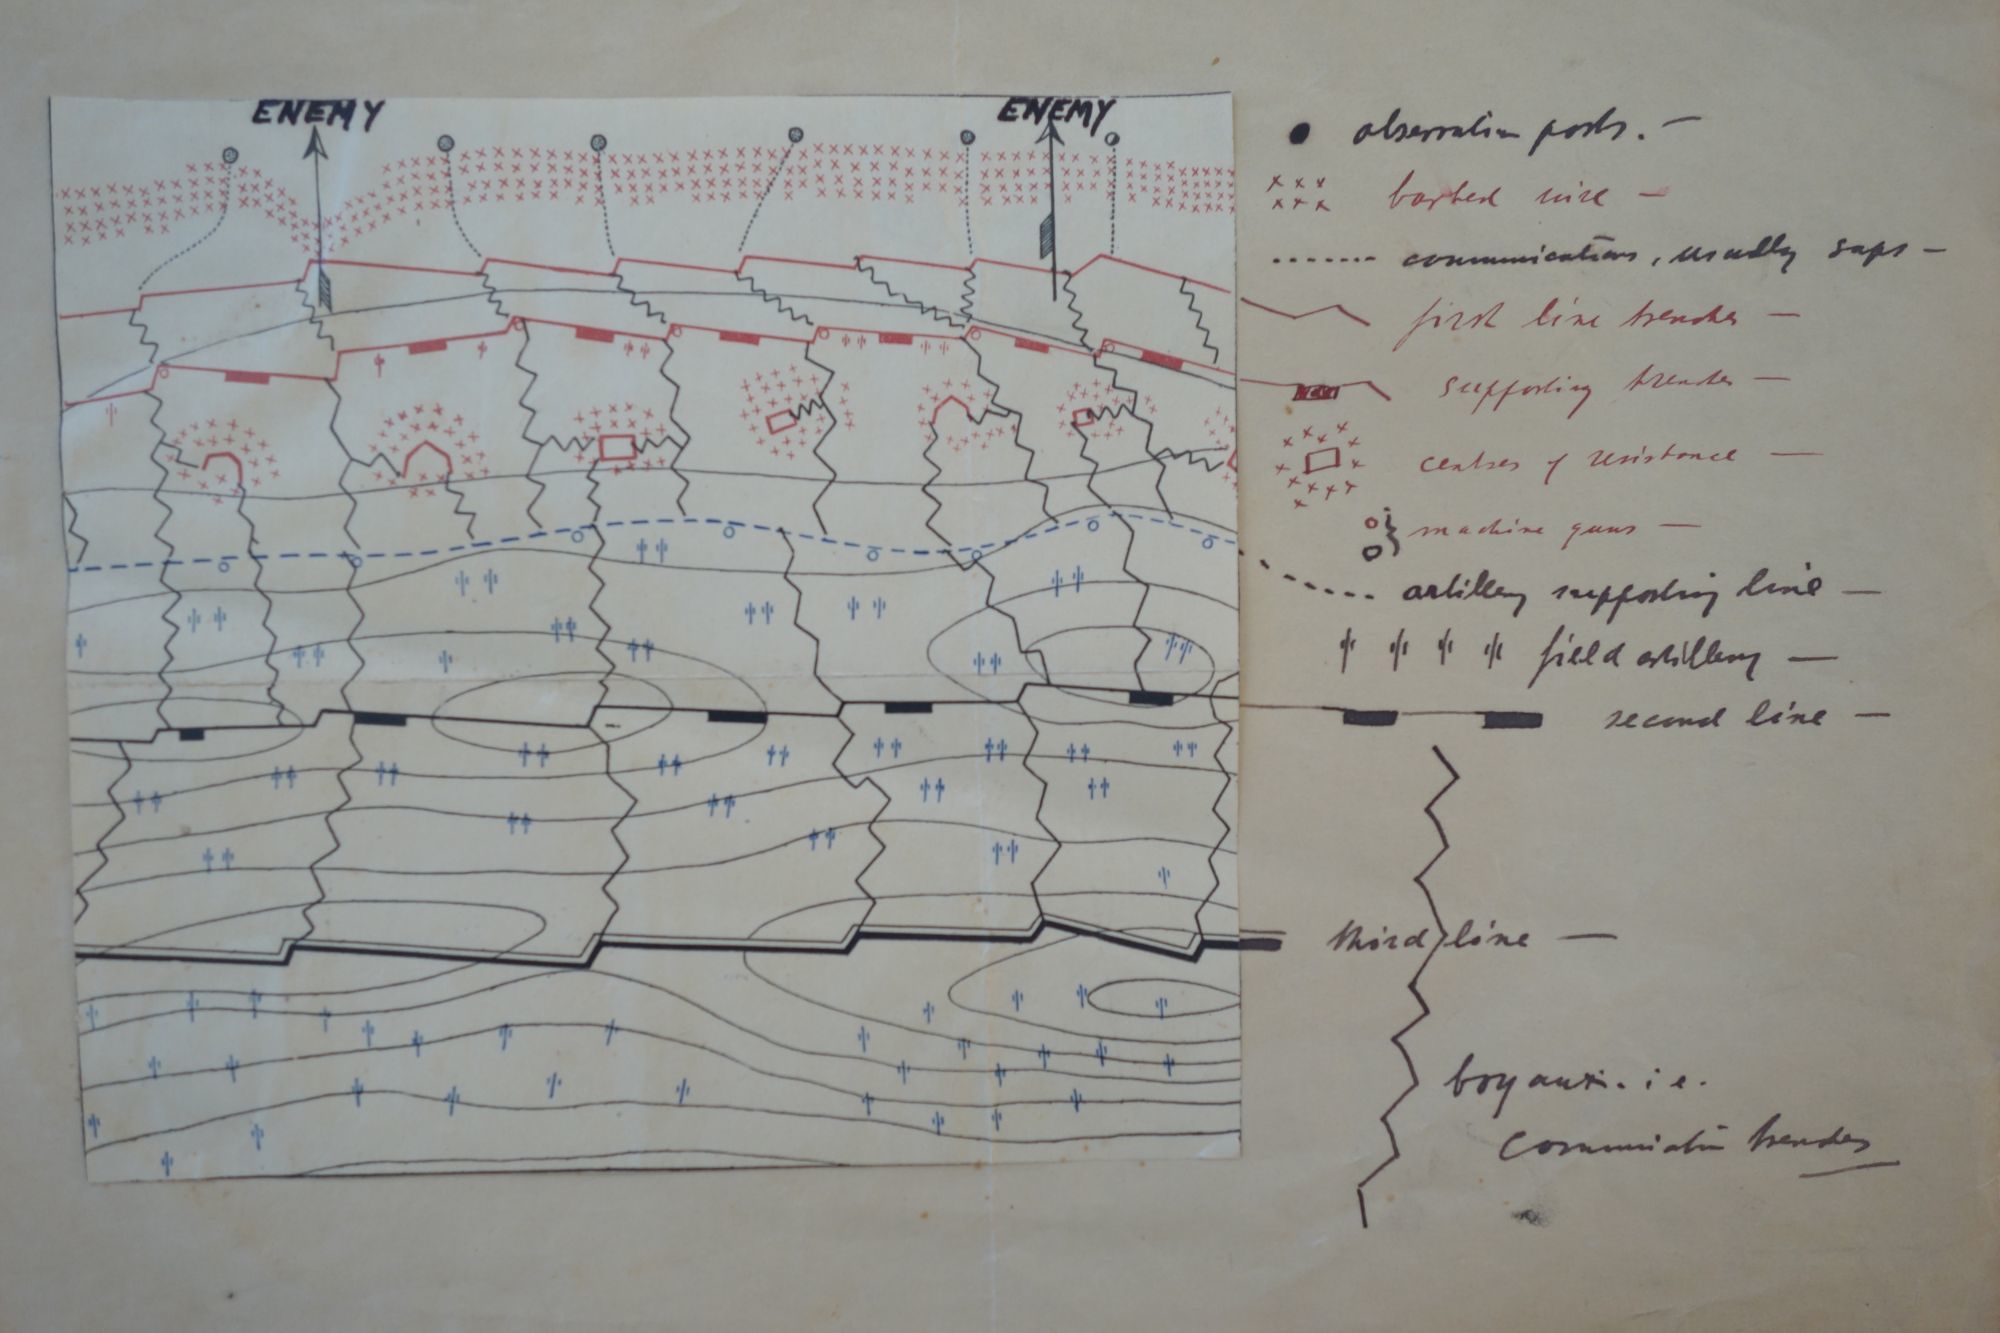 ENEMY
ENEMY
observation posts. —
barbed wire —
communications, usually saps —
first line trenches —
supporting trenches —
centres of resistance —
machine guns —
artillery supporting line —
field artillery —
second line —
third line —
boyaux. i.e.
communicatin trenches